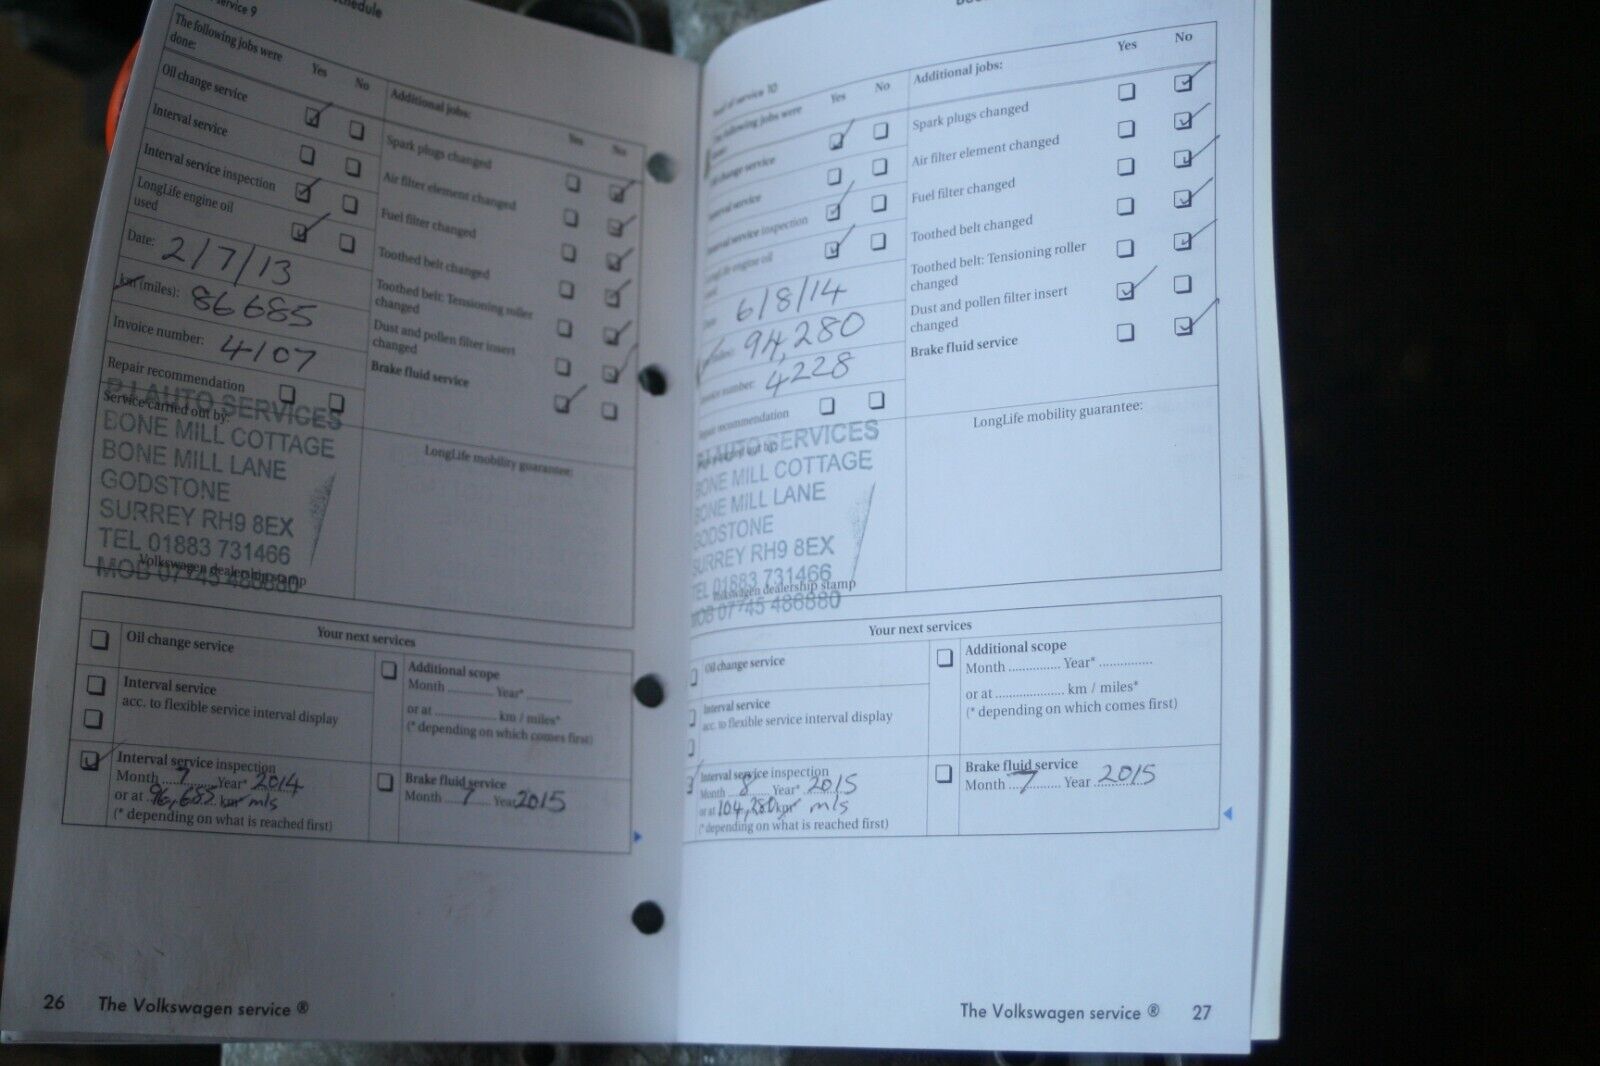 service 9
schedule
The following jobs were
done:
Yes No
Oil change service
Interval service
Interval service inspection
LongLife engine oil
used
Date: 2/7/13
km (miles): 86685
Invoice number: 4107
Repair recommendation
Service carried out by:
P.J AUTO SERVICES
BONE MILL COTTAGE
BONE MILL LANE
GODSTONE
SURREY RH9 8EX
TEL 01883 731466
Volkswagen dealership stamp
MOB 07745 486880
Additional jobs:
Yes No
Spark plugs changed
Air filter element changed
Fuel filter changed
Toothed belt changed
Toothed belt: Tensioning roller
changed
Dust and pollen filter insert
changed
Brake fluid service
LongLife mobility guarantee:
Your next services
Oil change service
Interval service
acc. to flexible service interval display
Interval service inspection
Month 7 Year* 2014
or at 96,685 km mls
(* depending on what is reached first)
Additional scope
Month .............. Year* ..............
or at .................... km / miles*
(* depending on which comes first)
Brake fluid service
Month 7 Year 2015
26 The Volkswagen service ®
of service 10
following jobs were
Yes No
Oil change service
Interval service
Interval service inspection
LongLife engine oil
6/8/14
94,280
Invoice number: 4228
Repair recommendation
P.J AUTO SERVICES
BONE MILL COTTAGE
BONE MILL LANE
GODSTONE
SURREY RH9 8EX
TEL 01883 731466
Volkswagen dealership stamp
MOB 07745 486880
Additional jobs:
Yes No
Spark plugs changed
Air filter element changed
Fuel filter changed
Toothed belt changed
Toothed belt: Tensioning roller
changed
Dust and pollen filter insert
changed
Brake fluid service
LongLife mobility guarantee:
Your next services
Oil change service
Interval service
acc. to flexible service interval display
Interval service inspection
Month 8 Year* 2015
or at 104,280 km mls
(* depending on what is reached first)
Additional scope
Month .............. Year* ..............
or at .................... km / miles*
(* depending on which comes first)
Brake fluid service
Month 7 Year 2015
The Volkswagen service ® 27